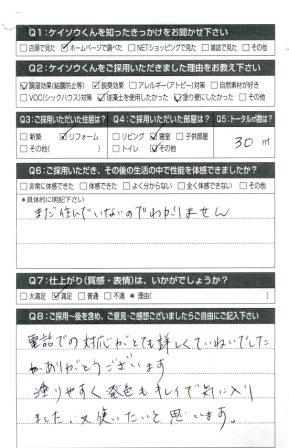 Q1：ケイソウくんを知ったきっかけをお聞かせ下さい
□店頭で見た ☑ホームページで調べた □NETショッピングで見た □雑誌で見た □その他
Q2：ケイソウくんをご採用いただきました理由をお教え下さい
☑調湿効果(結露防止等) ☑脱臭効果 □アレルギー(アトピー)対策 □自然素材が好き
□VOC(シックハウス)対策 ☑珪藻土を使用したかった ☑塗り壁にしたかった □その他
Q3：ご採用いただいた住居は？ Q4：ご採用いただいた部屋は？ Q5：トータル㎡数は？
□新築 ☑リフォーム □リビング ☑寝室 □子供部屋 30 ㎡
□その他( ) □トイレ ☑その他
Q6：ご採用いただき、その後の生活の中で性能を体感できましたか？
□非常に体感できた □体感できた □よく分からない □全く体感できない □その他
*具体的に明記下さい
まだ住んでいないのでわかりません
Q7：仕上がり（質感・表情）は、いかがでしょうか？
□大満足 ☑満足 □普通 □不満 * 理由( )
Q8：ご採用～後を含め、ご意見・ご感想ございましたらご自由にご記入下さい
電話での対応がとても詳しくていねいでした
ありがとうございます
塗りやすく発色もキレイで気に入り
ました。又使いたいと思います。